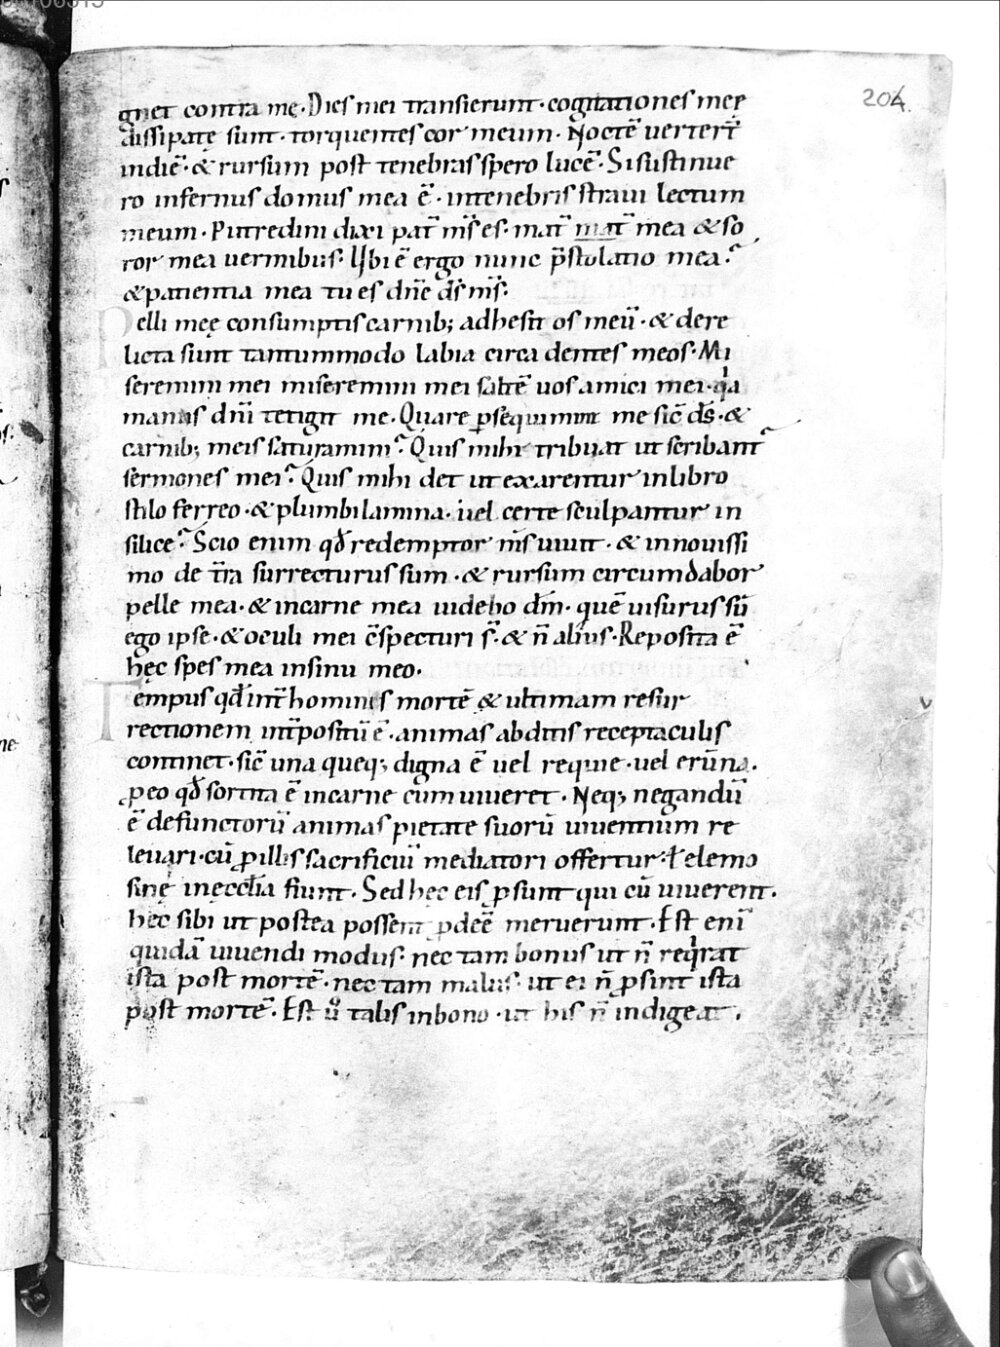 204
gnet contra me. Dies mei transierunt. cogitationes meę
dissipatę sunt. torquentes cor meum. Noctē uerterт̄
indiē. & rursum post tenebras spero lucē. Si sustinue
ro infernus domus mea ē. intenebris straui lectum
meum. Putredini dixi pat̄ m̄s es. mat̄ mat̄ mea & so
ror mea uermibus. Ubi ē ergo nunc p̄stolatio mea?
& patientia mea tu es dn̄e ds̄ m̄s.
Pelli meę consumptis carnib; adhesit os meū. & dere
licta sunt tantummodo labia circa dentes meos. Mi
seremini mei miseremini mei saltē uos amici mei. qa
manus dn̄i tetigit me. Quare ꝑsequimini me sic̄ ds̄. &
carnib; meis saturamini? Quis mihi tribuat ut scribant̄
sermones mei? Quis mihi det ut exarentur inlibro
stilo ferreo. & plumbi lamina. uel certe sculpantur in
silice? Scio enim qd̄ redemptor m̄s uiuit. & innouissi
mo de tr̄a surrecturus sum. & rursum circumdabor
pelle mea. & incarne mea uidebo dm̄. quē uisurus sū
ego ipse. & oculi mei c̄specturi s̄. & n̄ alius. Reposita ē
hęc spes mea insinu meo.
Tempus qd̄ int̄ hominis mortē & ultimam resur
rectionem int̄positū ē. animas abditis receptaculis
continet. sic̄ una queq; digna ē uel requie. uel erūna.
ꝓ eo qd̄ sortita ē incarne cum uiueret. Neq; negandū
ē defunctorū animas pietate suorū uiuentium re
leuari. cū ꝓ illis sacrificiū mediatori offertur. ł elemo
sinę inęccl̄ia fiunt. Sed hęc eis ꝓsunt qui cū uiuerent.
hęc sibi ut postea possent ꝓdeē meruerunt. Est enī
quidā uiuendi modus. nec tam bonus ut n̄ reqrat
ista post mortē. nec tam malus. ut ei n̄ ꝓsint ista
post mortē. Est ū talis inbono. ut his n̄ indigeat.